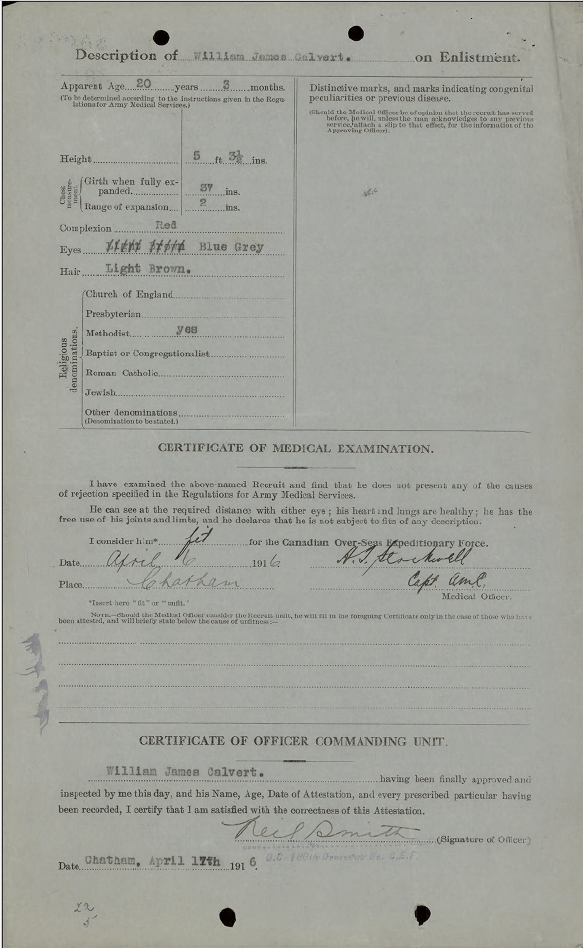 Description of William James Calvert. on Enlistment.
Apparent Age 20 years 3 months.
(To be determined according to the instructions given in the Regulations for Army Medical Services.)
Height 5 ft. 3½ ins.
Chest measurement.
Girth when fully expanded 37 ins.
Range of expansion 2 ins.
Complexion Red
Eyes Blue Grey
Hair Light Brown.
Religious denominations.
Church of England
Presbyterian
Methodist yes
Baptist or Congregationalist
Roman Catholic
Jewish
Other denominations
(Denomination to be stated.)
Distinctive marks, and marks indicating congenital
peculiarities or previous disease.
(Should the Medical Officer be of opinion that the recruit has served
before, he will, unless the man acknowledges to any previous
service, attach a slip to that effect, for the information of the
Approving Officer).
CERTIFICATE OF MEDICAL EXAMINATION.
I have examined the above-named Recruit and find that he does not present any of the causes
of rejection specified in the Regulations for Army Medical Services.
He can see at the required distance with either eye; his heart and lungs are healthy; he has the
free use of his joints and limbs, and he declares that he is not subject to fits of any description.
I consider him* fit for the Canadian Over-Seas Expeditionary Force.
Date April 6 1916
Place Chatham
Stockwell
Capt. AMC.
Medical Officer.
*Insert here "fit" or "unfit."
NOTE.—Should the Medical Officer consider the Recruit unfit, he will fill in the foregoing Certificate only in the case of those who have
been attested, and will briefly state below the cause of unfitness:—
CERTIFICATE OF OFFICER COMMANDING UNIT.
William James Calvert. having been finally approved and
inspected by me this day, and his Name, Age, Date of Attestation, and every prescribed particular having
been recorded, I certify that I am satisfied with the correctness of this Attestation.
Neil Smith (Signature of Officer)
O.C. Overseas Bn. C.E.F.
Date Chatham, April 17th 1916.
22
5